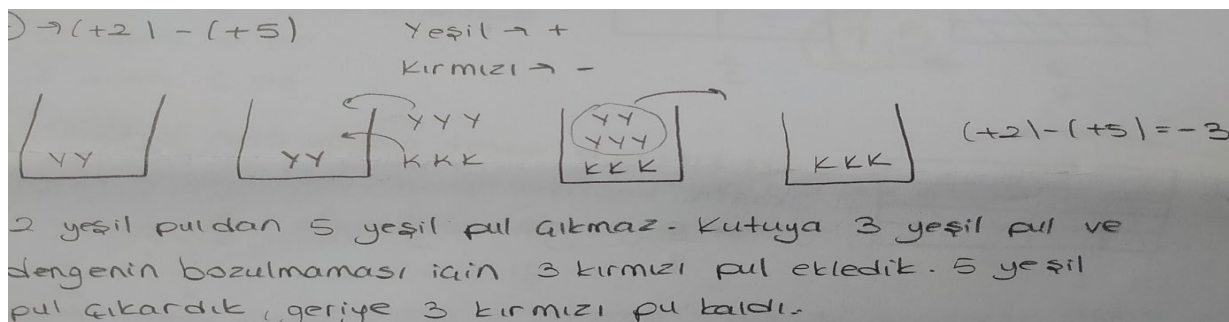 → (+2) - (+5) Yeşil → +
Kırmızı → -
YY YY YYY YY (+2) - (+5) = -3
KKK YYY KKK
KKK
2 yeşil puldan 5 yeşil pul çıkmaz. Kutuya 3 yeşil pul ve
dengenin bozulmaması için 3 kırmızı pul ekledik. 5 yeşil
pul çıkardık, geriye 3 kırmızı pu kaldı.